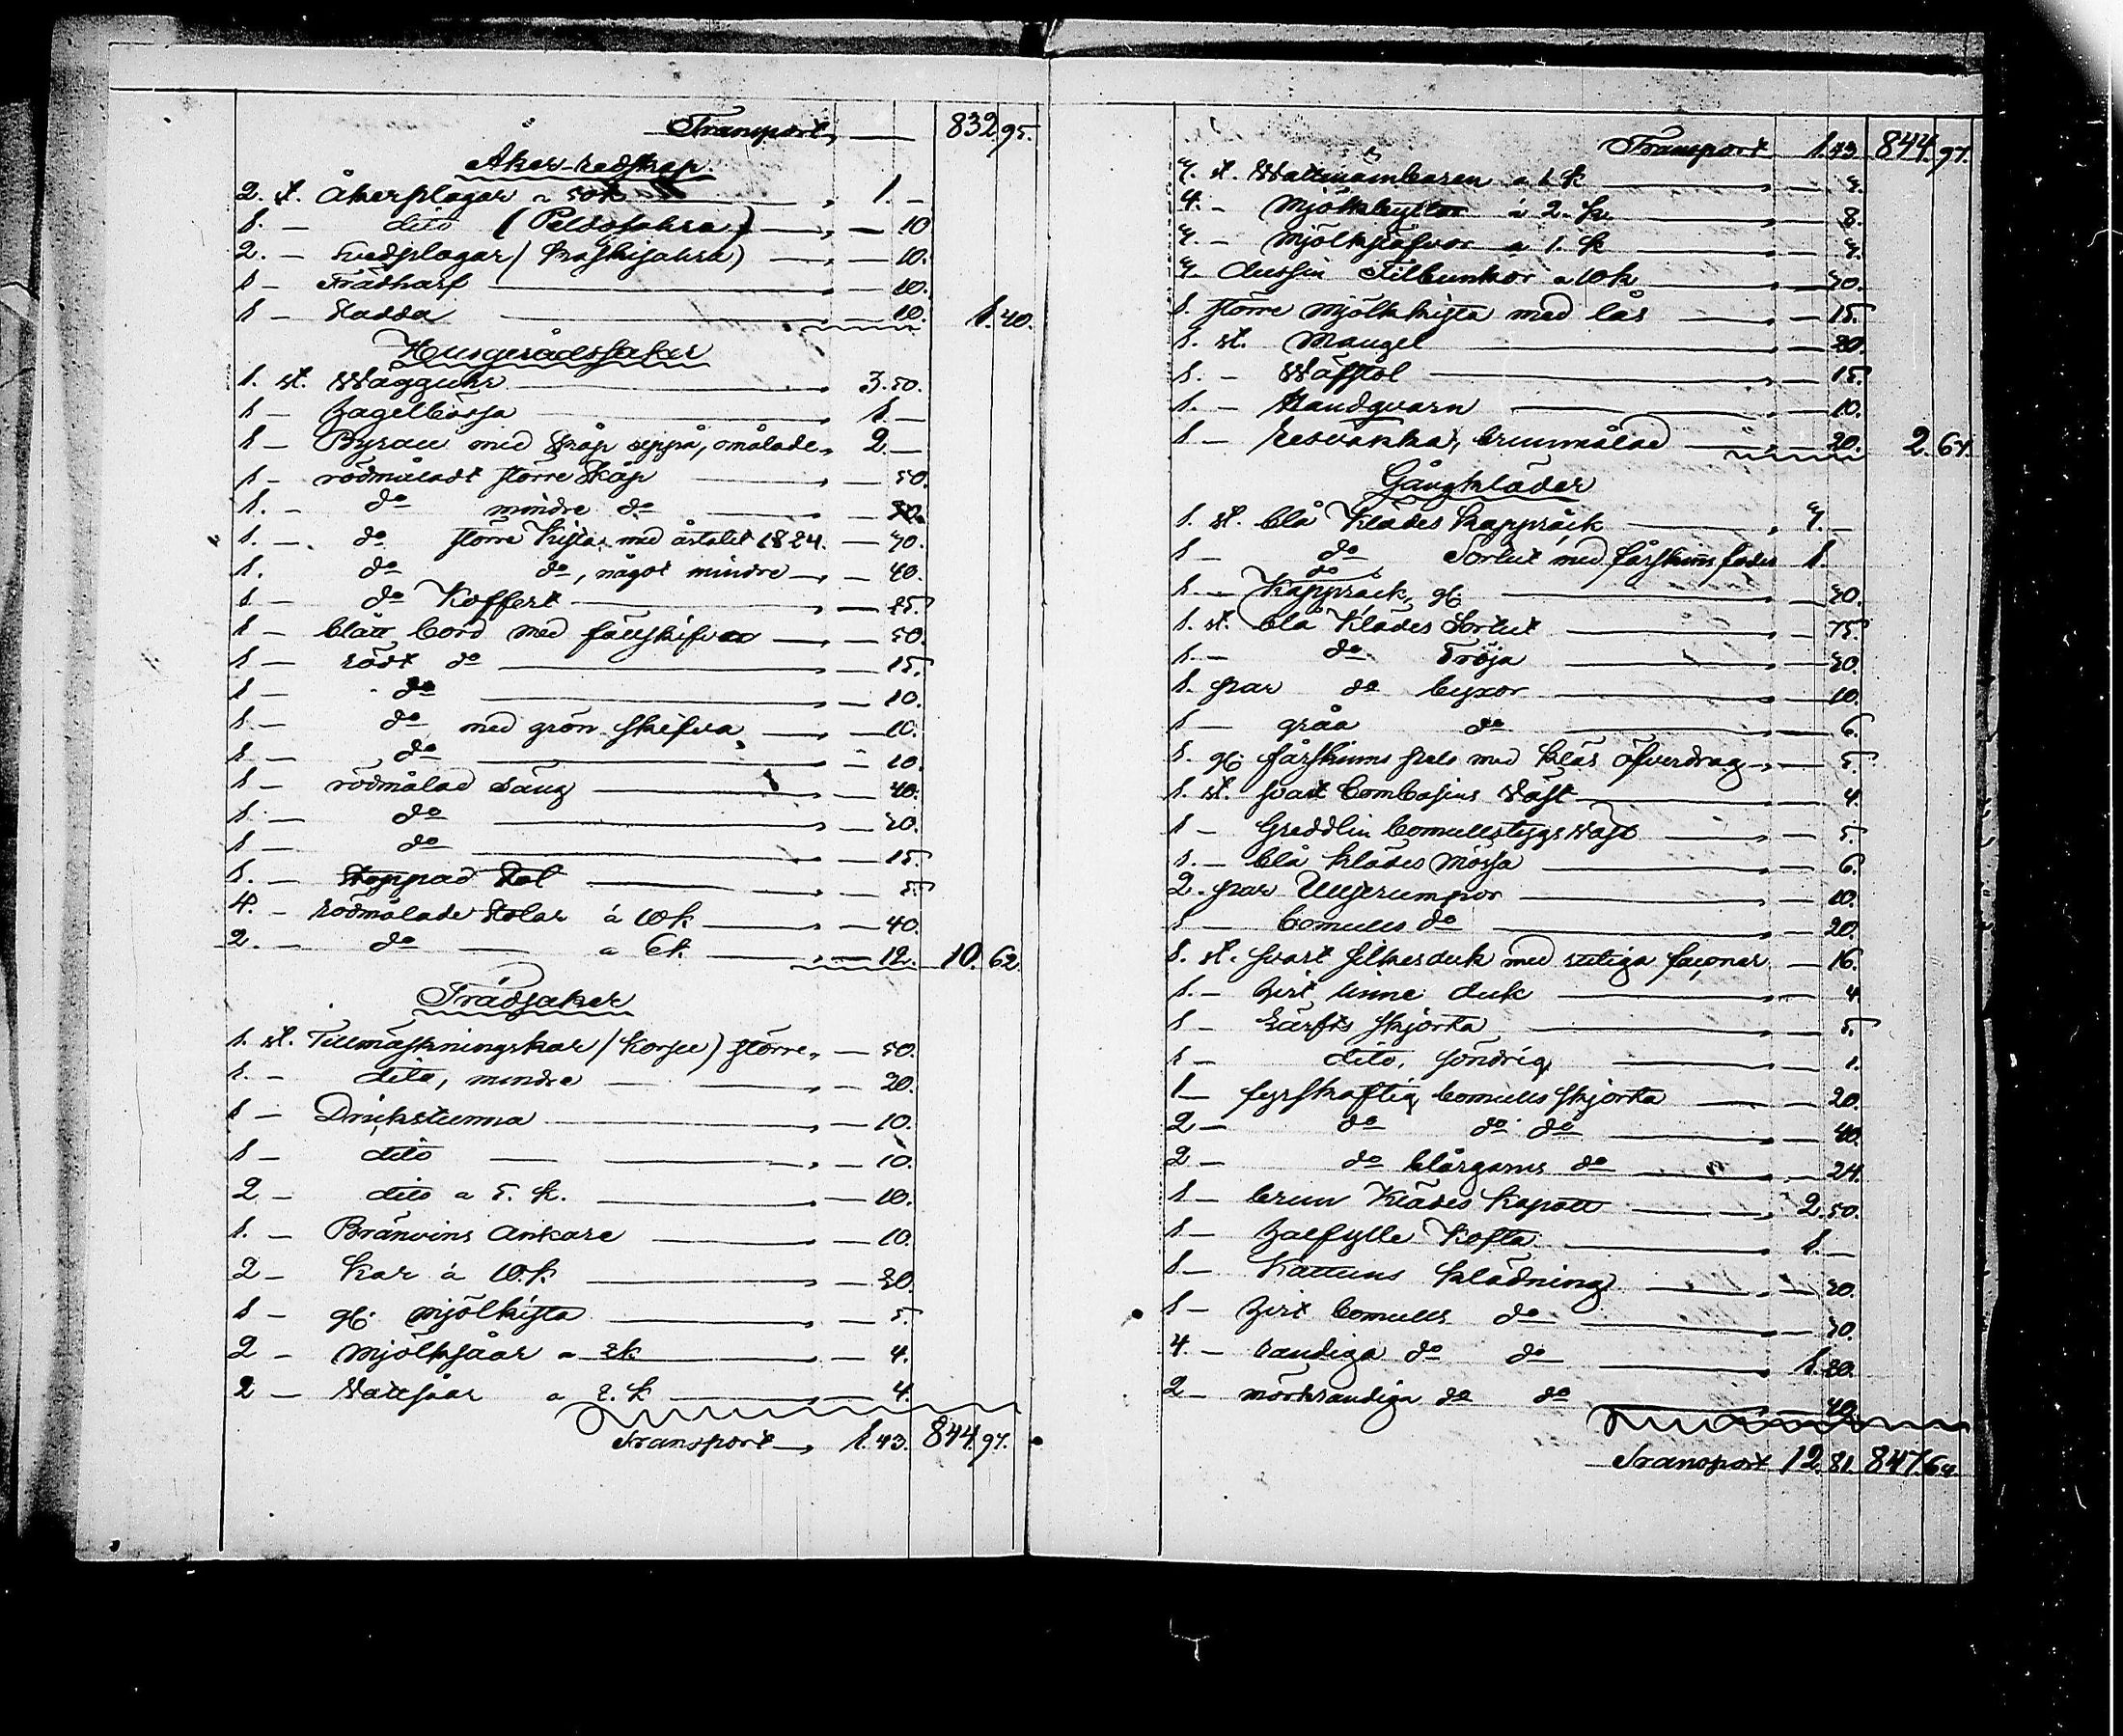 Transport, — 832 95.
Åker-redskap.
2. st. Åkerplogar a 50 k — 1. -
1. - dito (Peldosahra) — 10
2. - Svedplogar (Kaskisahra) — 10.
1 - Trädharf — 10.
1 - Sladda — 10. 1.40.
Husgerådssaker
1. st. Wägguhr — 3.50.
1 - hagelbössa — 1 —
1 - Byrau med skåp uppå, omålade, 2. —
1 - rödmåladt större Skåp — 50.
1. - do mindre do — 30.
1. - do större Kista, med årtalet 1824. — 70.
1. do do, något mindre — 40.
1 - do Koffert — 25.
1 - blått bord med fällskifvor — 50.
1 - rödt do — 15.
1 - do — 10.
1 - do med grön skifva — 10.
1 - do — 10.
1 - rödmålad Säng — 40.
1 - do — 20.
1 - do — 15.
1. - Stoppad Stol — 5.
4. - rödmålade Stolar á 10 k — 40.
2. - do — a 6 k. — 12. 10. 62.
Trädsaker
1. st. Tillmäskningskar (korsu) större, — 50.
1. - dito, mindre — 20.
1 - Drickstunna — 10.
1 - dito — 10.
2 - dito a 5. k. — 10.
1. - Bränvins Ankare — 10.
2 - Kar á 10. k. — 20.
1 - gl. mjölkista — 5.
2 - Mjölksåar a 2 k — 4.
2 - Vattsåar a 2. k — 4.
Transport —, 1.43. 844.97.
Transport 1.43. 844.97.
4. st. Wattuämbaren a 1 k — 4.
4. - Mjölkbyttor á 2. k. — 8.
4. - Mjölkstäfvor a 1. k — 4.
4. dussin Filbunkor a 10 k — 40.
1. större Mjölkkista med lås — 15.
1. st. Mangel — 20.
1. - Wäfstol — 15.
1. - Handqvarn — 10.
1 - resvankka, brunmålad — 20. 2.64.
Gångkläder
1. st. blå Klädes kappråck — 4. —
1 - do Sortut med fårskinns foder 1.
1. - do Kapprock, gl. — 40.
1. st. blå Klädes Sortut — 75.
1. - do Tröja — 30.
1. par do byxor — 10.
1 - gråa do — 6.
1. gl. fårskinns pels med kläd. öfverdrag — 5.
1. st. svart bombasins Wäst — 4.
1 - Greddlin bomullstygs Wäst — 5.
1. - blå klädes Mössa — 6.
2. par Ullstrumpor — 10.
1 - bomulls do — 20.
1. st. svart silkesduk med rutiga façoner — 16.
1. - hvit linne duk — 4
1 - Lärfts skjorta — 5.
1 - dito, söndrig — 1.
1 - fyrskaftig bomulls skjorta — 20.
2 - do do do — 40.
2 - do blårgarns do — 24.
1 - brun Klädes kapott — 2.50.
1 - halfylle Kofta — 1. —
1. - Kattuns klädning — 20.
1 - hvit bomulls do — 30.
4. - randiga do do — 1.20.
2 - mörkrandiga do do — 40.
Transport 12.81. 847.61.